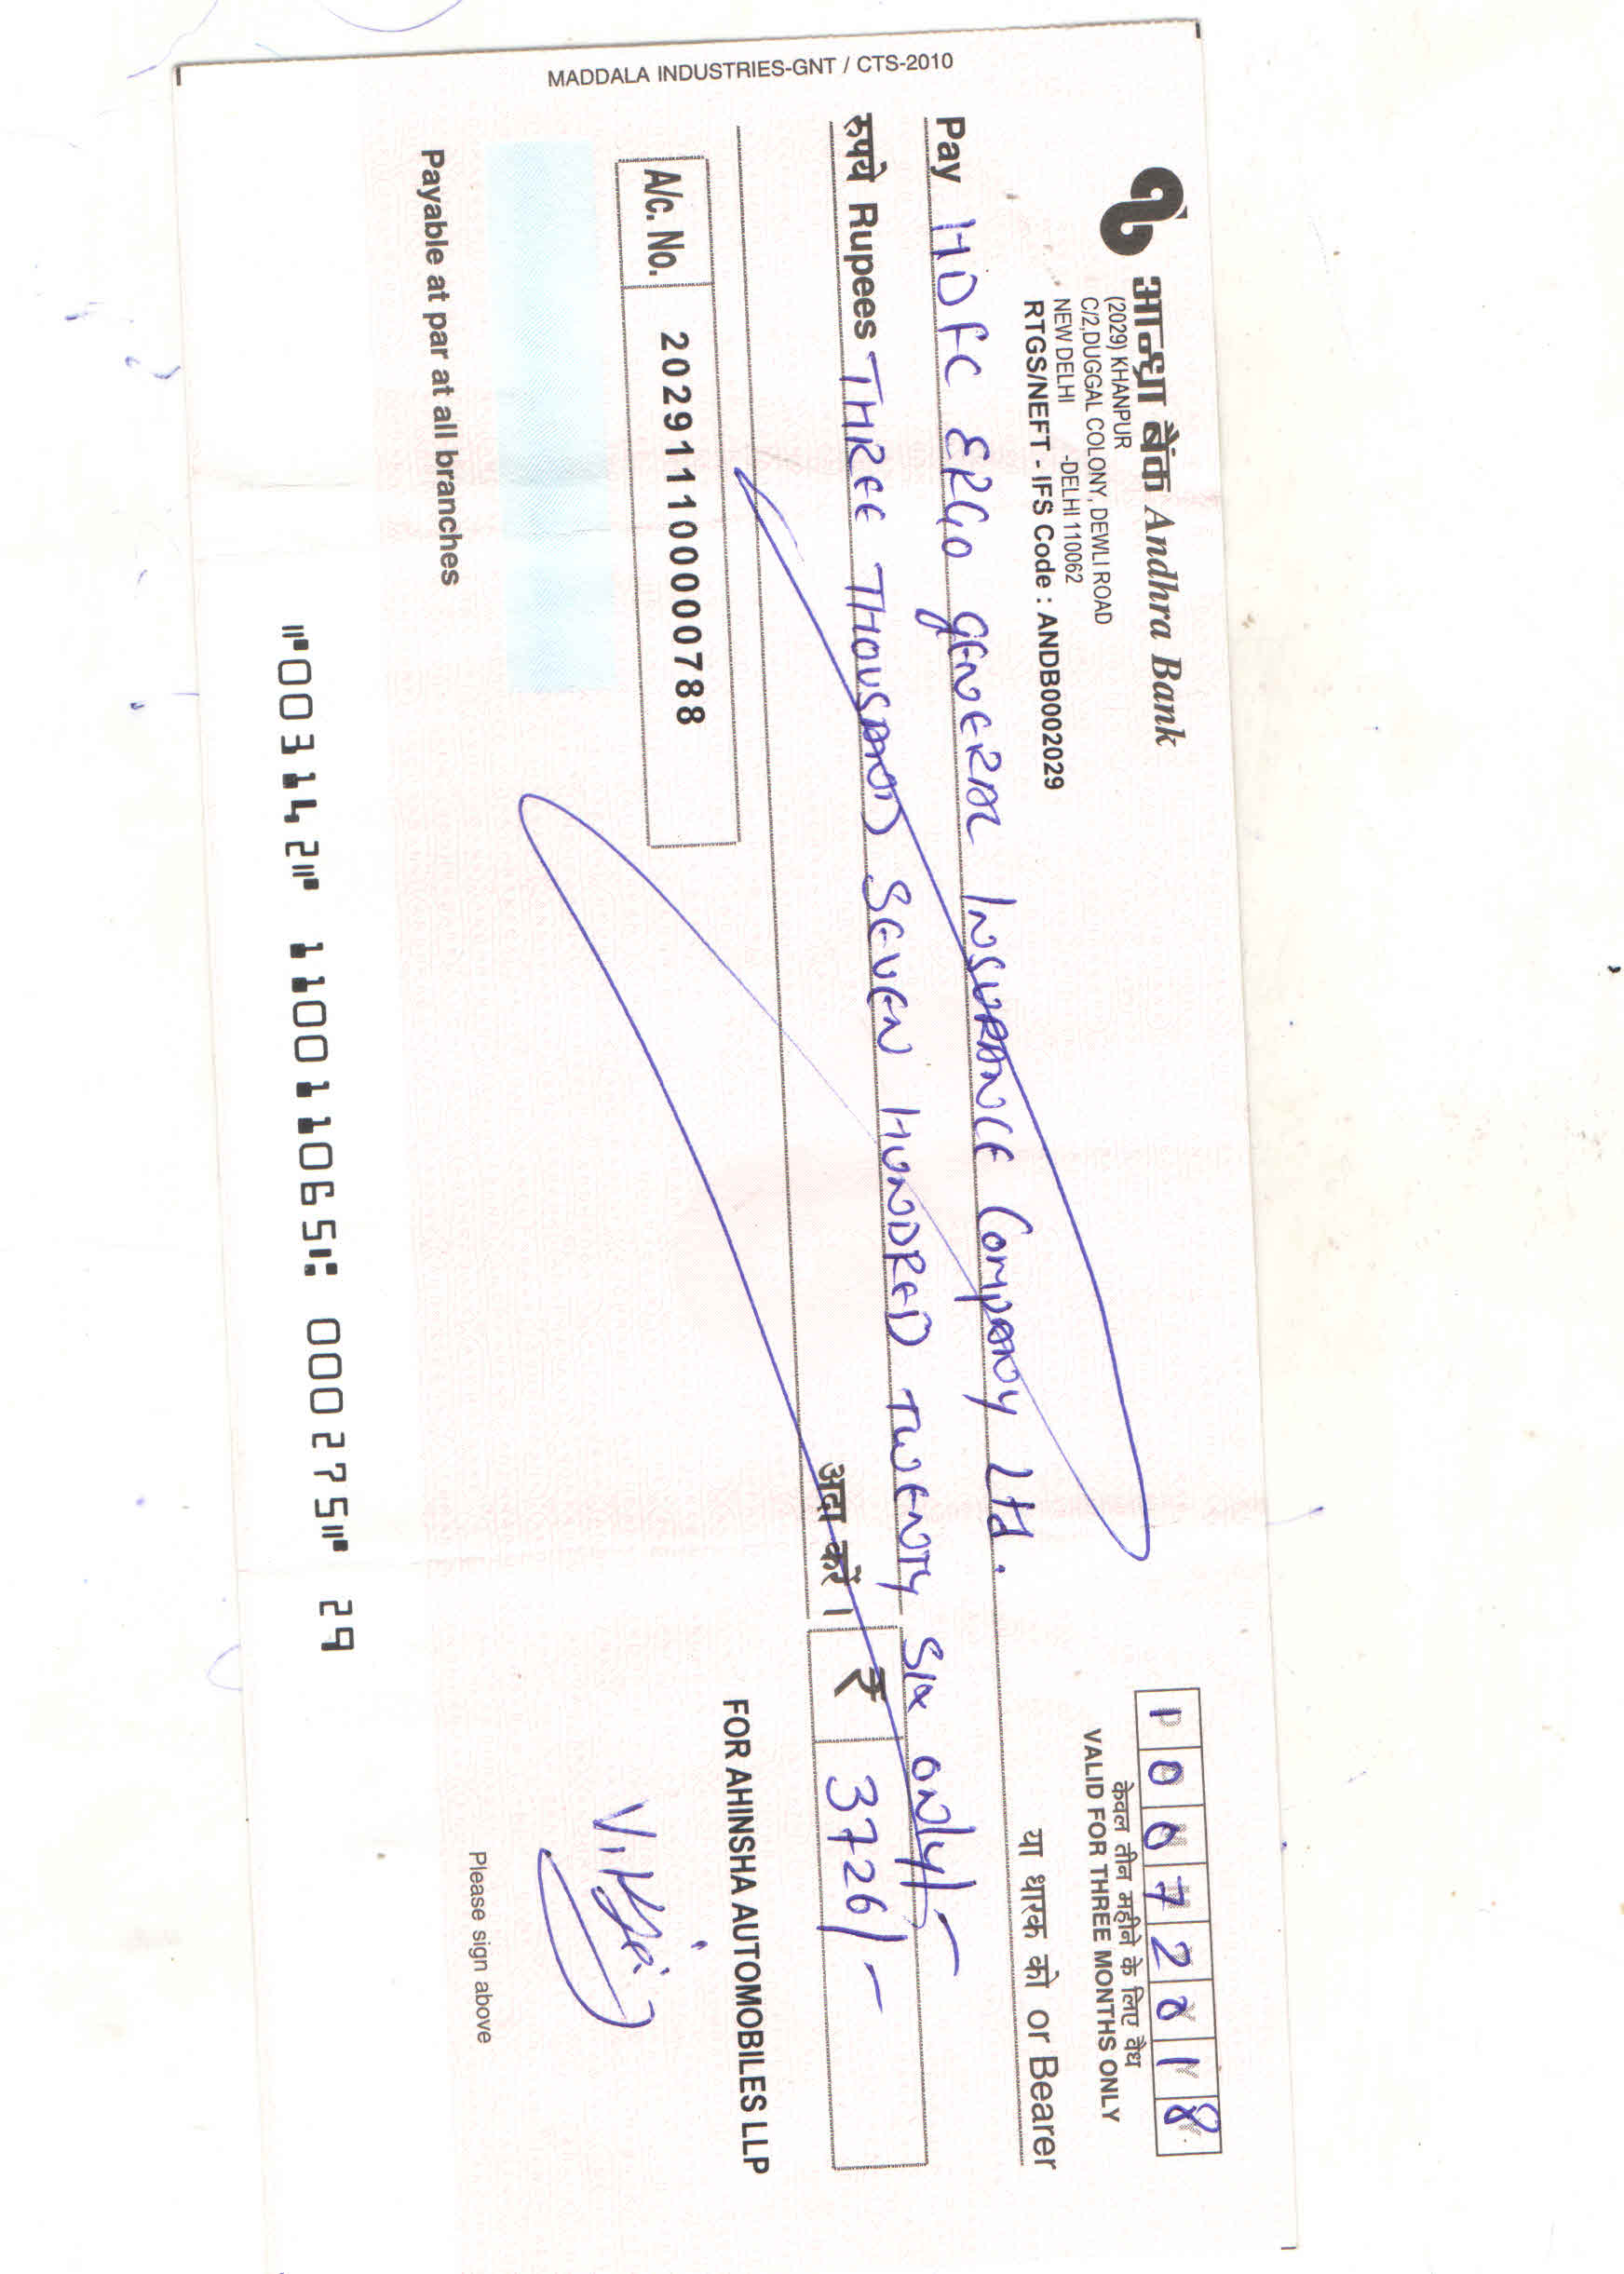 MADDALA INDUSTRIES-GNT / CTS-2010
आन्ध्रा बैंक Andhra Bank
(2029) KHANPUR
C/2,DUGGAL COLONY, DEWLI ROAD
NEW DELHI -DELHI 110062
RTGS/NEFT - IFS Code : ANDB0002029
10072018
केवल तीन महीने के लिए वैध
VALID FOR THREE MONTHS ONLY
Pay HDFC ERGO GENERAL INSURANCE Company Ltd. या धारक को or Bearer
रुपये Rupees THREE THOUSAND SEVEN HUNDRED TWENTY SIX ONLY/-
अदा करें । ₹ 3726/-
A/c. No. 202911100000788
FOR AHINSHA AUTOMOBILES LLP
Payable at par at all branches
Please sign above
⑈003142⑈ 110011065⑆ 000275⑈ 29